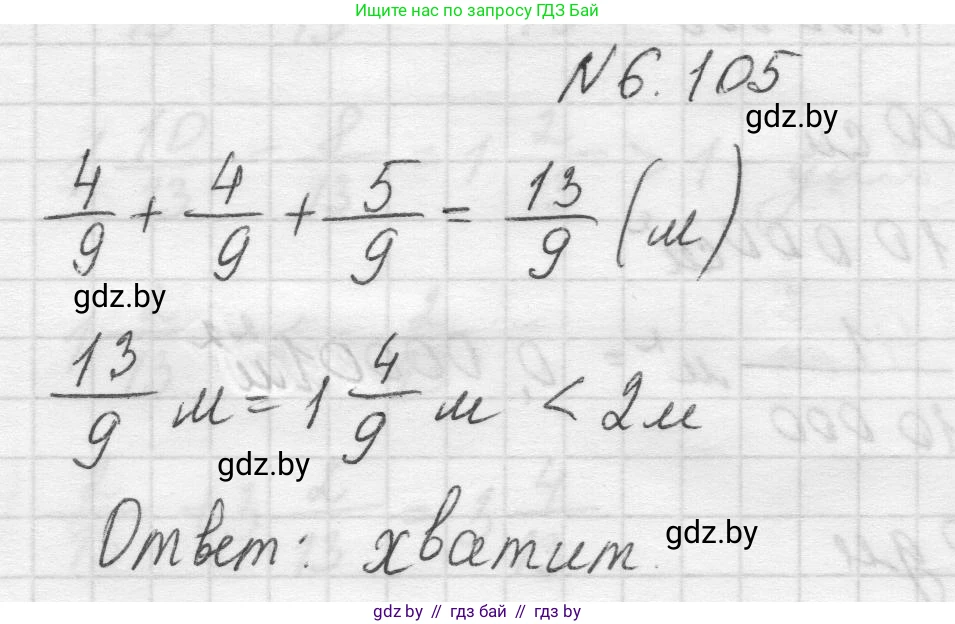 Ищите нас по запросу ГДЗ Бай
N 6. 105
gdz.by
4/9 + 4/9 + 5/9 = 13/9 (м)
gdz.by
13/9 м = 1 4/9 м < 2м
gdz.by
Ответ: хватит.
gdz.by
gdz.by // гдз бай // гдз by